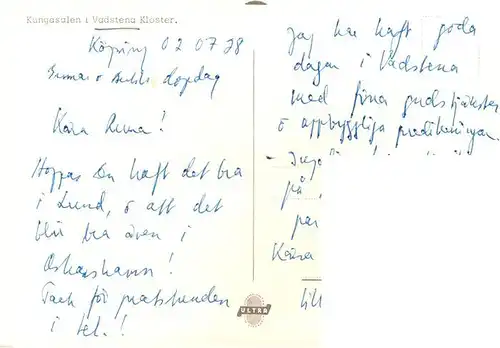 Kungasalen i Vadstena Kloster.
Köping 02 07 28
dopdag
Kära Runa!
Hoppas Du haft det bra
i Lund, o att det
blir bra även i
Oskarshamn!
Tack för pratstunden
i tel.!
ULTRA
Jag har haft goda
dagar i Vadstena
med fina gudstjänster
o uppbyggliga predikningar.
på
Kära